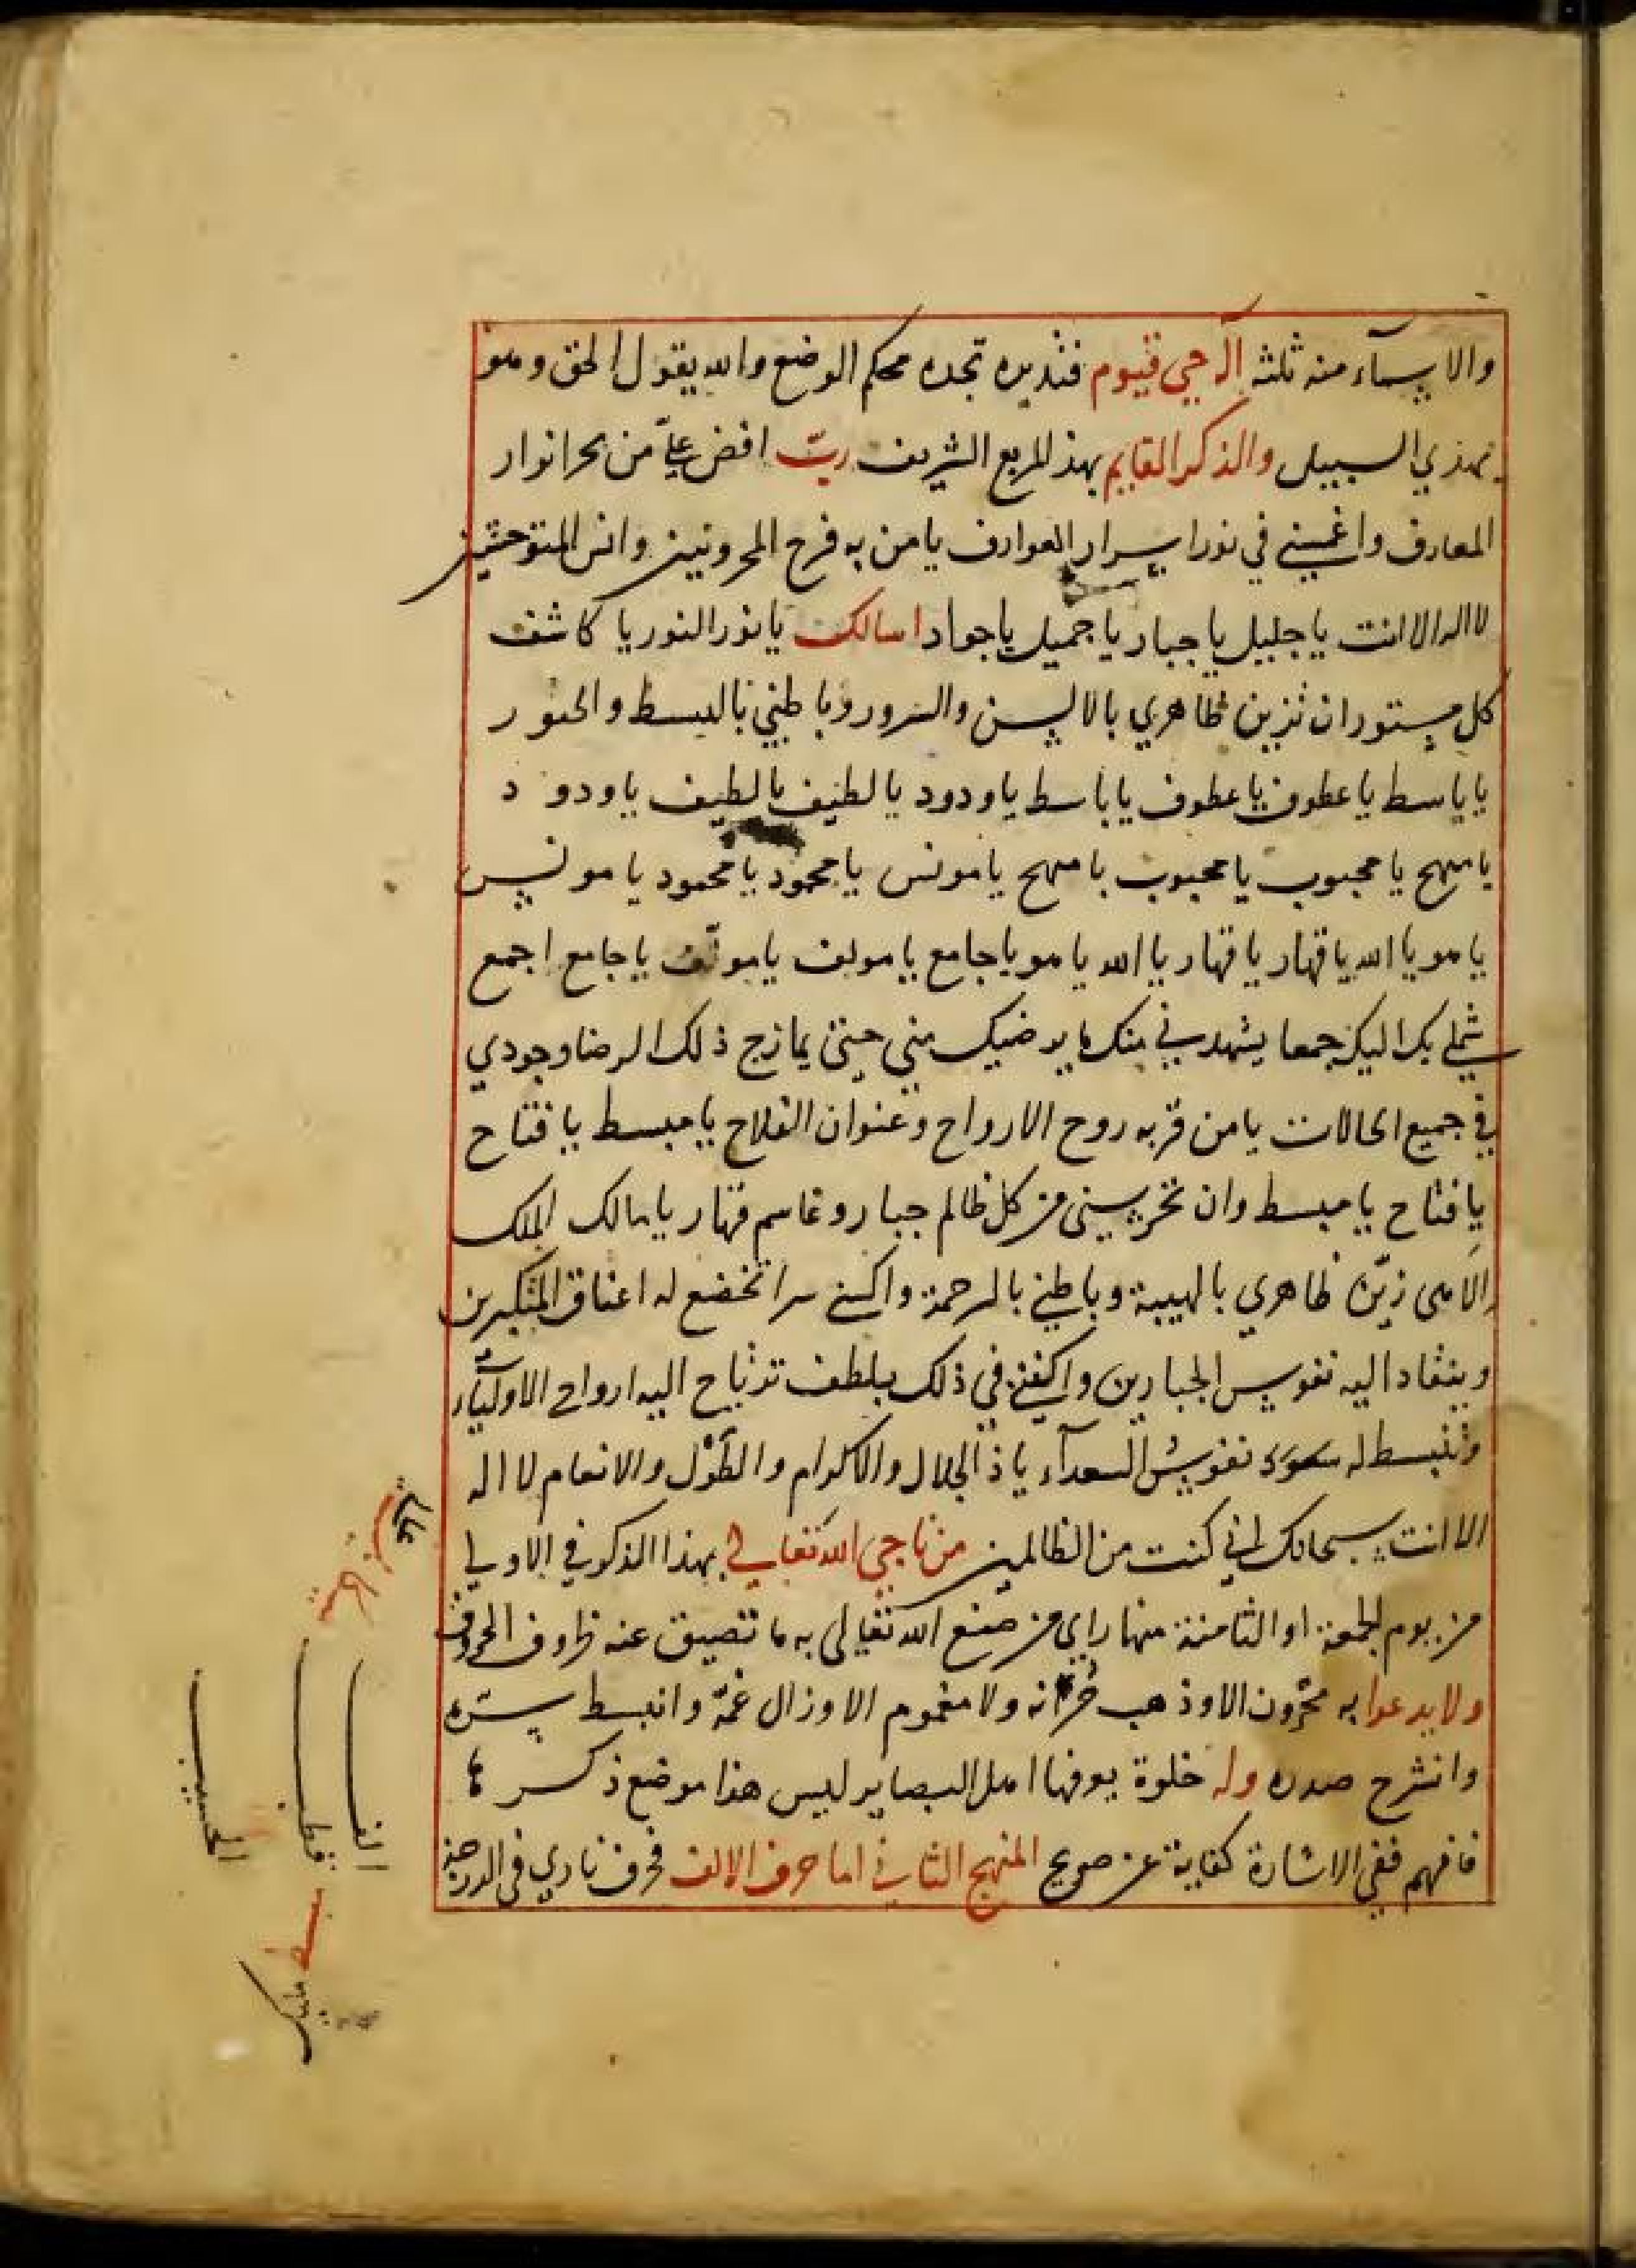 والاسمآء منه ثلثة آله حي قيوم فتدبره تجده محكم الوضع والله يقول الحق وهو
يهدي السبيل والذكر القايم بهذا المربع الشريف ربّ افض عليّ من بحر انوار
المعارف واغمسني في نور اسرار العوارف يا من به فرح المحزونين وانس المتوحشين
لا اله الا انت يا جليل يا جبار يا جميل يا جواد اسالك يا نور النور يا كاشف
كل مستور ان تزين ظاهري بالانس والسرور وباطني بالبسط والحبور
يا باسط يا عطوف يا عطوف يا باسط يا ودود يا لطيف يا لطيف يا ودود
يا مبهج يا محبوب يا محبوب يا مبهج يا مونس يا محمود يا محمود يا مونس
يا هو يا الله يا قهار يا قهار يا الله يا هو يا جامع يا مولف يا مولّف يا جامع اجمع
شملي بك اليك جمعا يشهدني منك ما يرضيك مني حتى يمازج ذلك الرضا وجودي
في جميع الحالات يا من قربه روح الارواح وعنوان الفلاح يا مبسط يا فتاح
يا فتاح يا مبسط وان تحرسني من كل ظالم جبار وغاشم قهار يا مالك الملك
الاهى زيّن ظاهري بالهيبة وباطني بالرحمة واكسني سرا تخضع له اعناق المتكبرين
وينقاد اليه نفوس الجبارين واكنفني في ذلك بلطف ترتاح اليه ارواح الاوليآء
وتنبسط له نفوس السعدآء يا ذا الجلال والاكرام والطَوْل والانعام لا اله
الا انت سبحانك اني كنت من الظالمين من ناجى الله تعالى بهذا الذكر في الاولى
من يوم الجمعة او الثامنة منها راي من صنع الله تعالى به ما تضيق عنه ظروف الحروف
ولا يدعوا به محزون الا وذهب حزنه ولا مغموم الا وزال غمّه وانبسط سرّه
وانشرح صدره وله خلوة يعرفها اهل البصاير ليس هذا موضع ذكرها
فافهم ففي الاشارة كفاية عن صريح المنهج الثاني اما حرف الالف فحرف ناري في الدرجة
الف
قطب